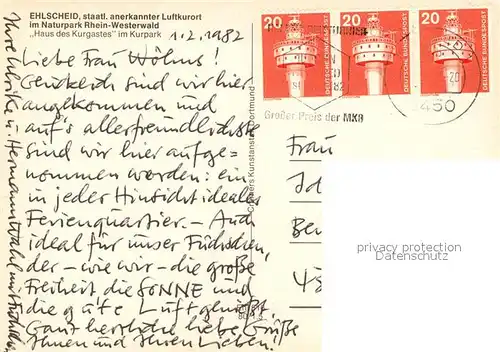 EHLSCHEID, staatl. anerkannter Luftkurort
im Naturpark Rhein-Westerwald
„Haus des Kurgastes" im Kurpark
1.2.1982
Liebe Frau Wölms!
Glücklich sind wir hier
angekommen und
auf's allerfreundlichste
sind wir hier aufge-
nommen worden: ein
in jeder Hinsicht ideales
Ferienquartier. – Auch
ideal für unser Füchschen,
der – wie wir – die große
Freiheit die SONNE und
die gute Luft genießt.
Ganz herzliche liebe Grüße
Ihnen und Ihren Lieben.
Ihre Ulrike u. Hermann Wahl mit Füchschen
Cramers Kunstanstalt Dortmund
20
20
20
DEUTSCHE BUNDESPOST
DEUTSCHE BUNDESPOST
DEUTSCHE BUNDESPOST
5450
Großer Preis der MKB
Frau
privacy protection
Datenschutz